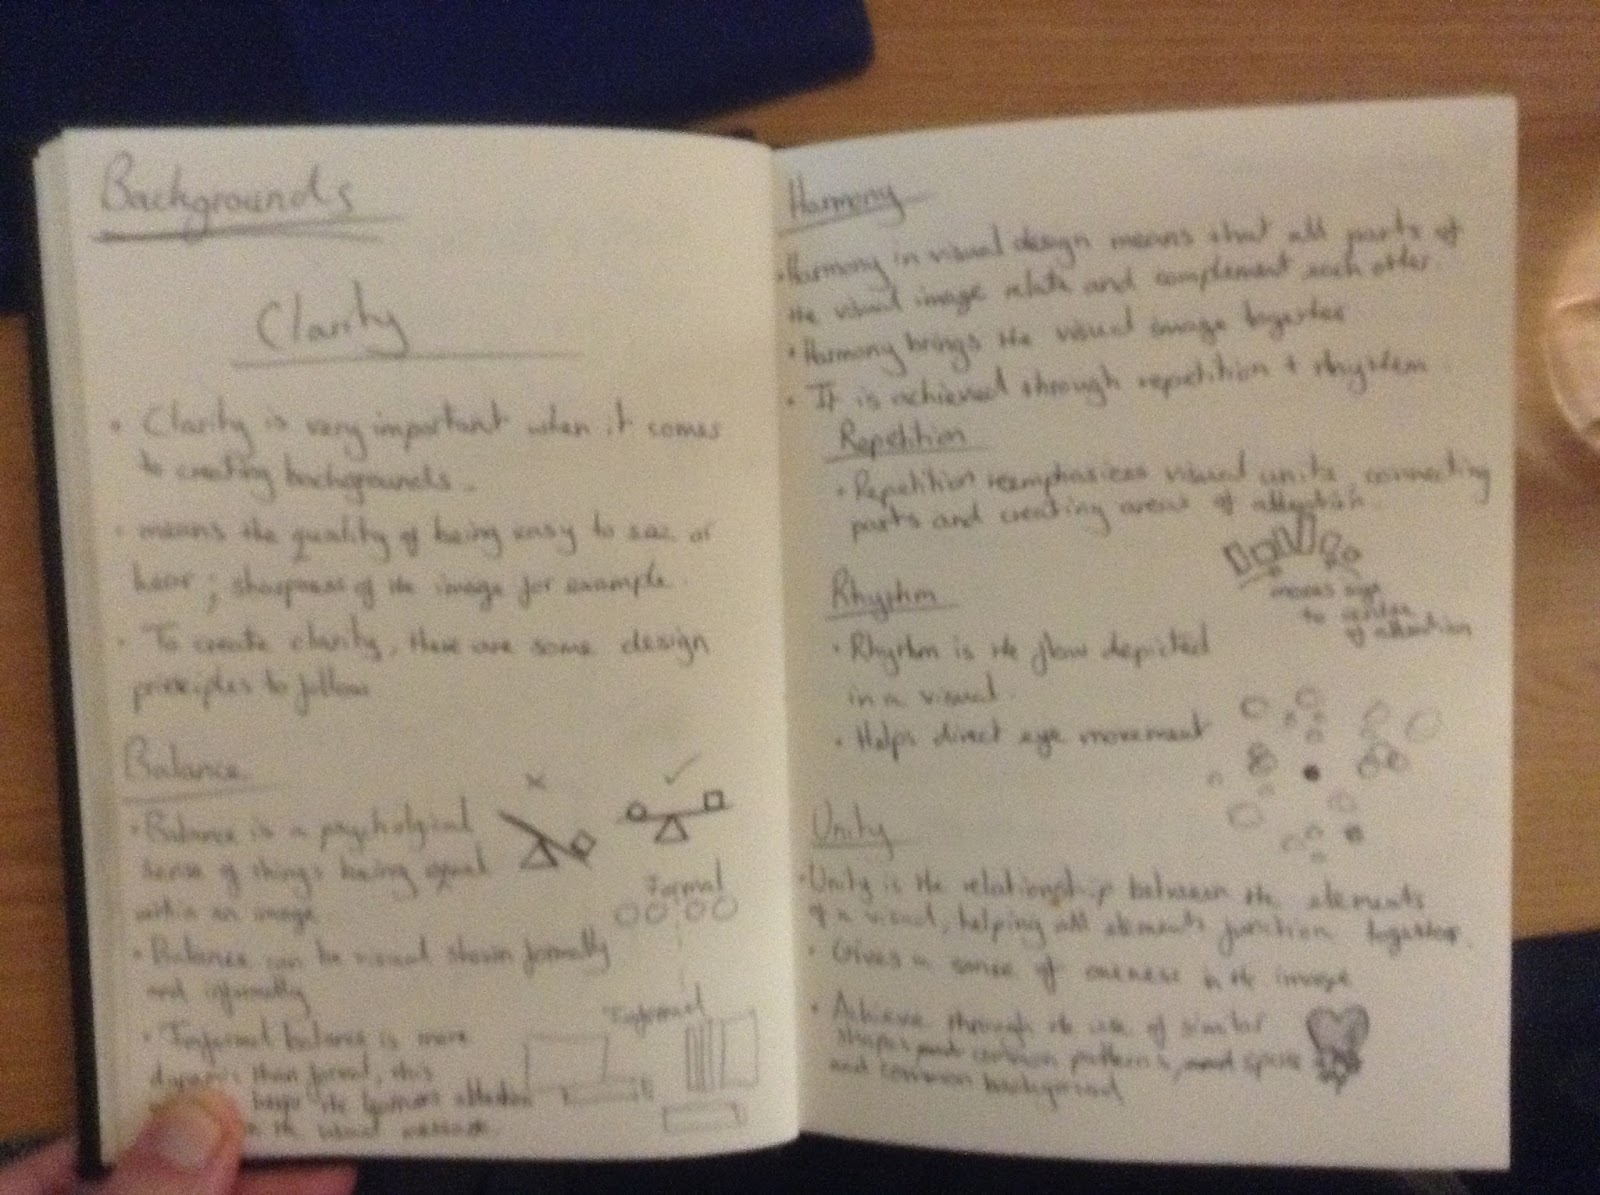 Backgrounds
Clarity
• Clarity is very important when it comes
to creating backgrounds.
• means the quality of being easy to see or
hear; sharpness of the image for example.
• To create clarity, there are some design
principles to follow
Balance
• Balance is a psycholgical
sense of things being equal
within an image
• Balance can be visual shown formally
and informally
• Informal balance is more
dynamic than formal, this
keeps the learners attention
on the visual message.
Formal
Informal
Harmony
• Harmony in visual design means that all parts of
the visual image relate and complement each other.
• Harmony brings the visual image together
• It is achieved through repetition + rhythem
Repetition
• Repetition reemphasizes visual units, connecting
parts and creating areas of attention.
moves eye
to centre
of attention
Rhythm
• Rhythm is the flow depicted
in a visual.
• Helps direct eye movement
Unity
• Unity is the relationship between the elements
of a visual, helping all elements function together.
• Gives a sense of oneness in the image
• Achieve through the use of similar
shapes and common patterns, and space
and common background